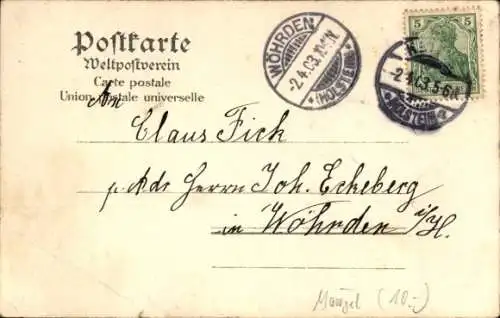 Postkarte
Weltpostverein
Carte postale
Union postale universelle
WÖHRDEN
2.4.03.10-11V.
(HOLSTEIN)
5 5
2.4.03.5-6N.
An
Claus Fick
p. Adr Herrn Joh. Eckeberg
in Wöhrden i/H.
(10.-)